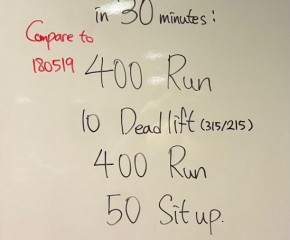 in 30 minutes:
Compare to
180519
400 Run
10 Deadlift (315/215)
400 Run
50 Situp.